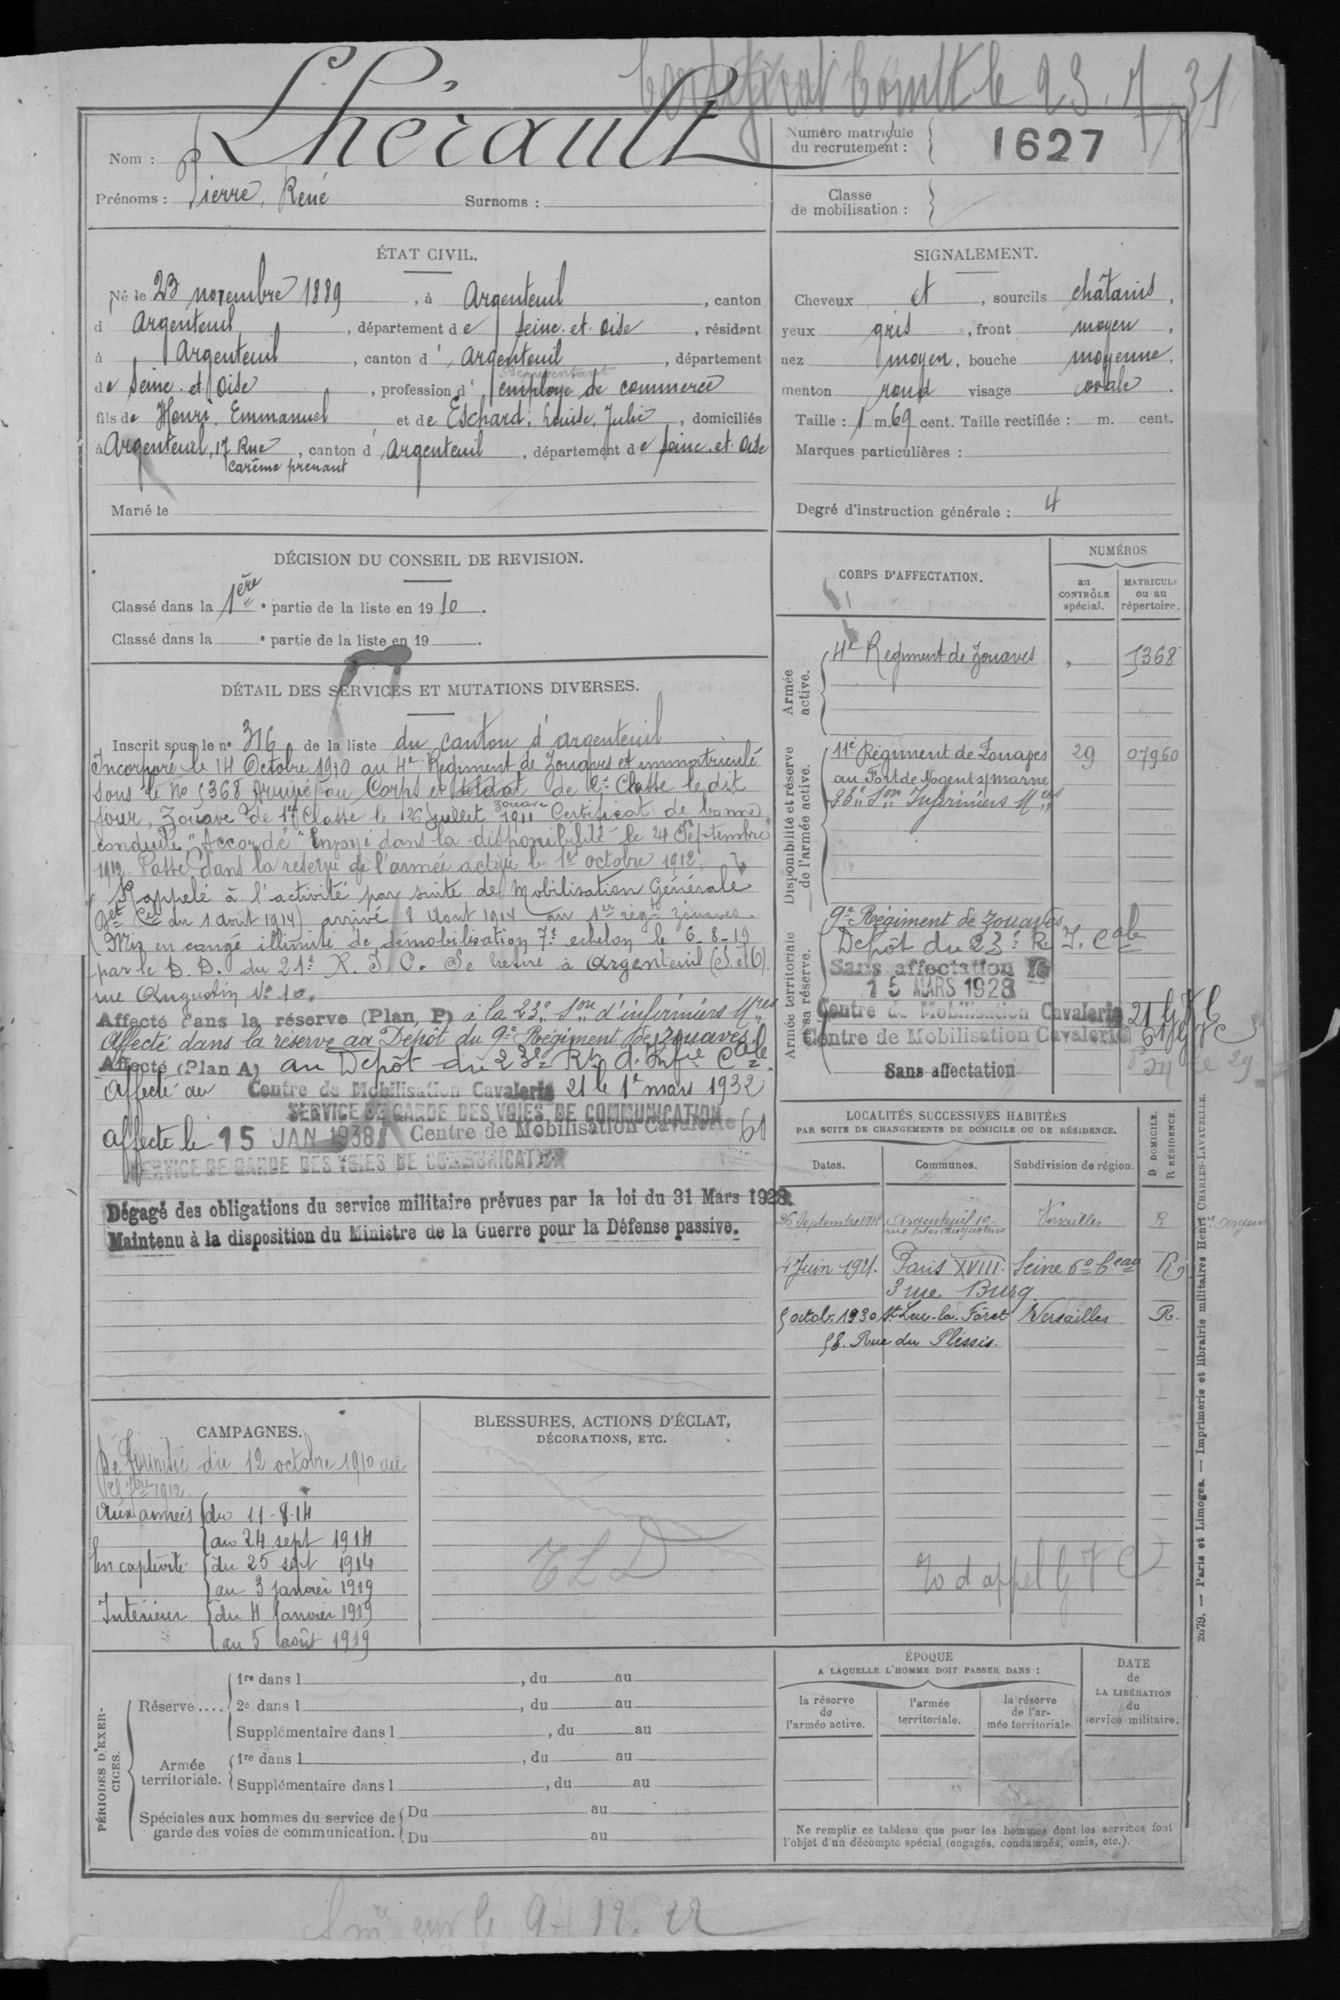 Certificat Combt le 23.7.31
Nom : Lhérault
Prénoms : Pierre, René Surnoms :
Numéro matricule du recrutement : 1627
Classe de mobilisation :
ÉTAT CIVIL.
Né le 23 novembre 1889, à Argenteuil, canton
d Argenteuil, département de Seine-et-Oise, résident
à Argenteuil, canton d' Argenteuil, département
de Seine-et-Oise, profession d' employé de commerce
fils de Henri Emmanuel et de Eschard, Louise, Julie, domiciliés
à Argenteuil, 17 Rue Carême prenant, canton d' Argenteuil, département de Seine-et-Oise
Marié le
SIGNALEMENT.
Cheveux et, sourcils châtains,
yeux gris, front moyen,
nez moyen, bouche moyenne,
menton rond visage ovale.
Taille : 1 m. 69 cent. Taille rectifiée : m. cent.
Marques particulières :
Degré d'instruction générale : 4
DÉCISION DU CONSEIL DE REVISION.
Classé dans la 1ère partie de la liste en 1910.
Classé dans la e partie de la liste en 19 .
DÉTAIL DES SERVICES ET MUTATIONS DIVERSES.
Inscrit sous le n° 316 de la liste du canton d'Argenteuil
Incorporé le 14 Octobre 1910 au 4e Régiment de Zouaves et immatriculé
sous le No 5368 Arrivé au Corps et soldat zouave de 2e Classe le dit
jour, Zouave de 1re Classe le 12 juillet 1911 Certificat de bonne
conduite "Accordé" Envoyé dans la disponibilité le 24 Septembre
1912. Passé dans la réserve de l'armée active le 1er octobre 1912.
Rappelé à l'activité par suite de Mobilisation Générale
(Dt Cel du 1 août 1914) arrivé 8 Août 1914 au 1er régt Zouaves.
Mis en congé illimité de démobilisation 7e échelon le 6-8-19
par le D. D. du 21e R. I. C. Se retire à Argenteuil (S. et O).
rue Auguotin N° 10.
Affecté dans la réserve (Plan P) à la 23e Son d'infirmiers Mres
Affecté dans la réserve au Dépôt du 9e Régiment de Zouaves.
Affecté (Plan A) au Dépôt du 23e Rt d'Infie Cale
Affecté au Centre de Mobilisation Cavalerie 21 le 1e mars 1932
SERVICE DE GARDE DES VOIES DE COMMUNICATION
Affecté le 15 JAN 1938 Centre de Mobilisation Cavalerie 61
SERVICE DE GARDE DES VOIES DE COMMUNICATION
Dégagé des obligations du service militaire prévues par la loi du 31 Mars 1928.
Maintenu à la disposition du Ministre de la Guerre pour la Défense passive.
CORPS D'AFFECTATION.
NUMÉROS
au CONTRÔLE spécial.
MATRICULE ou au répertoire.
Armée active.
4e Régiment de Zouaves 5368
Disponibilité et réserve de l'armée active.
11e Régiment de Zouaves 29 07960
au Fort de Nogent s/ Marne
23e Son Infirmiers Mres
Armée territoriale et sa réserve.
9e Régiment de Zouaves
Dépôt du 23e R. I. Cale
Sans affectation
15 MARS 1928
Centre de Mobilisation Cavalerie 21 GVC
Centre de Mobilisation Cavalerie 61 GVC
Sans affectation
LOCALITÉS SUCCESSIVES HABITÉES
PAR SUITE DE CHANGEMENTS DE DOMICILE OU DE RÉSIDENCE.
Dates. Communes. Subdivision de région. D DOMICILE. R RÉSIDENCE.
26 Septembre 1912 Argenteuil 10 Versailles R
4 Juin 1921. Paris XVIII. Seine 6e Beau R
3 rue Burq
5 octob. 1930 St-Leu-la-Forêt Versailles R.
58. Rue du Plessis.
CAMPAGNES.
De Tunisie du 12 octobre 1910 au
1912.
Aux armées du 11-8-14
au 24 sept 1914
En captivité du 25 sept 1914
au 3 janvier 1919
Intérieur du 4 Janvier 1919
au 5 août 1919
BLESSURES, ACTIONS D'ÉCLAT,
DÉCORATIONS, ETC.
Zo d'appel GVC
PÉRIODES D'EXERCICES.
Réserve.... 1re dans l , du au
2e dans l , du au
Supplémentaire dans l , du au
Armée territoriale. 1re dans l , du au
Supplémentaire dans l , du au
Spéciales aux hommes du service de garde des voies de communication. Du au
Du au
ÉPOQUE
A LAQUELLE L'HOMME DOIT PASSER DANS :
la réserve de l'armée active.
l'armée territoriale.
la réserve de l'armée territoriale.
DATE de LA LIBÉRATION du service militaire.
Ne remplir ce tableau que pour les hommes dont les services font
l'objet d'un décompte spécial (engagés, condamnés, omis, etc.).
2079. — Paris et Limoges. — Imprimerie et librairie militaires Henri CHARLES-LAVAUZELLE.